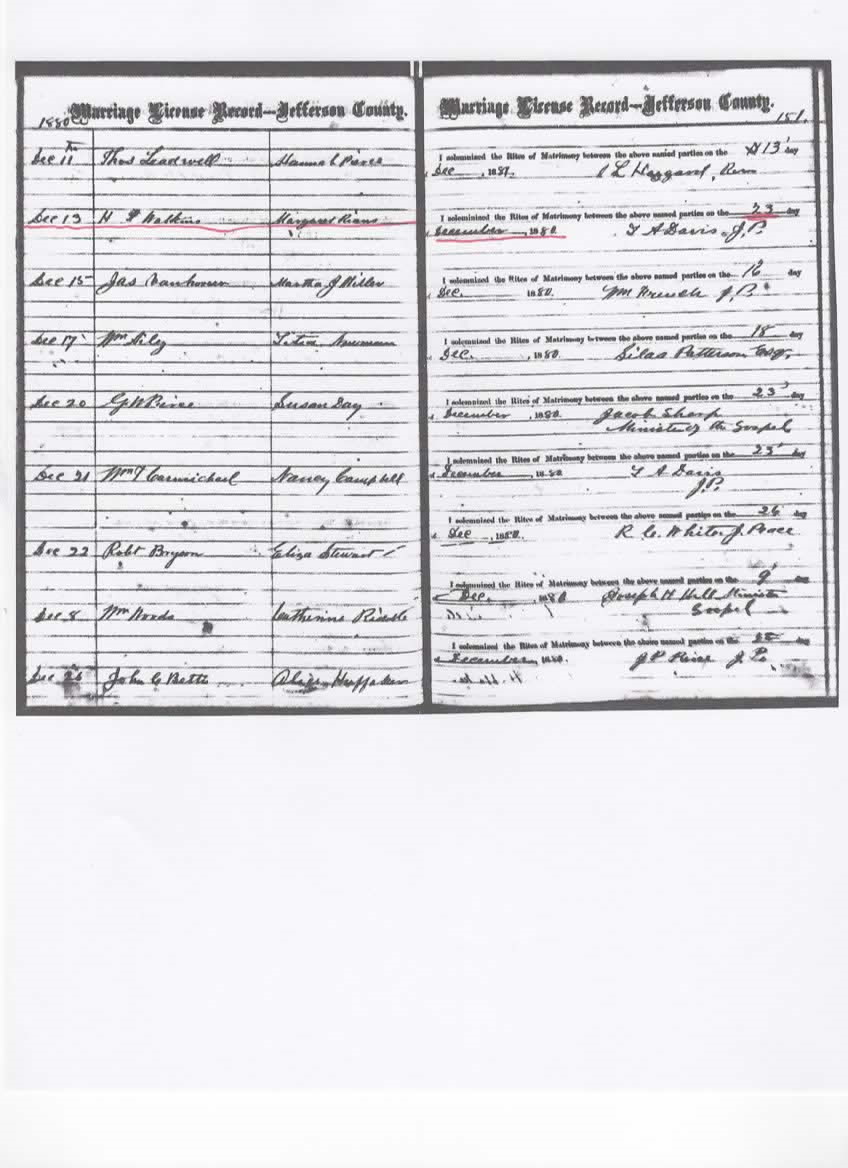 Marriage License Record—Jefferson County.
1880
Dec 11th Thos Leadwell Hannah Pierce
Dec 13 H Watkins Margaret Rians
Dec 15 Jas Vanhooser Martha J Miller
Dec 17 Wm Newman
Dec 20 G W Pierce Susan Day
Dec 21 Wm T Carmichael Nancy Campbell
Dec 22 Robt Bryson Eliza Stewart
Dec 8 Wm Woods Catherine
Dec John C Betts Alice Huffaker
Marriage License Record—Jefferson County.
151.
I solemnized the Rites of Matrimony between the above named parties on the 13 day
Dec , 188 L Haggard, Rev
I solemnized the Rites of Matrimony between the above named parties on the 23 day
December , 1880 T A Davis J.P.
I solemnized the Rites of Matrimony between the above named parties on the 16 day
Dec. 1880. Wm J.P.
I solemnized the Rites of Matrimony between the above named parties on the 18 day
Dec. , 1880. Silas Patterson Esq.
I solemnized the Rites of Matrimony between the above named parties on the 23 day
December , 1880. Jacob Sharp
Minister of the Gospel
I solemnized the Rites of Matrimony between the above named parties on the 23 day
December , 1880 T A Davis
J.P.
I solemnized the Rites of Matrimony between the above named parties on the 26 day
Dec , 1880. R. C. White J. Peace
I solemnized the Rites of Matrimony between the above named parties on the 9
Dec. , 1880 Joseph H Hill Minister
Gospel
I solemnized the Rites of Matrimony between the above named parties on the day
December , 1880. J P J.P.